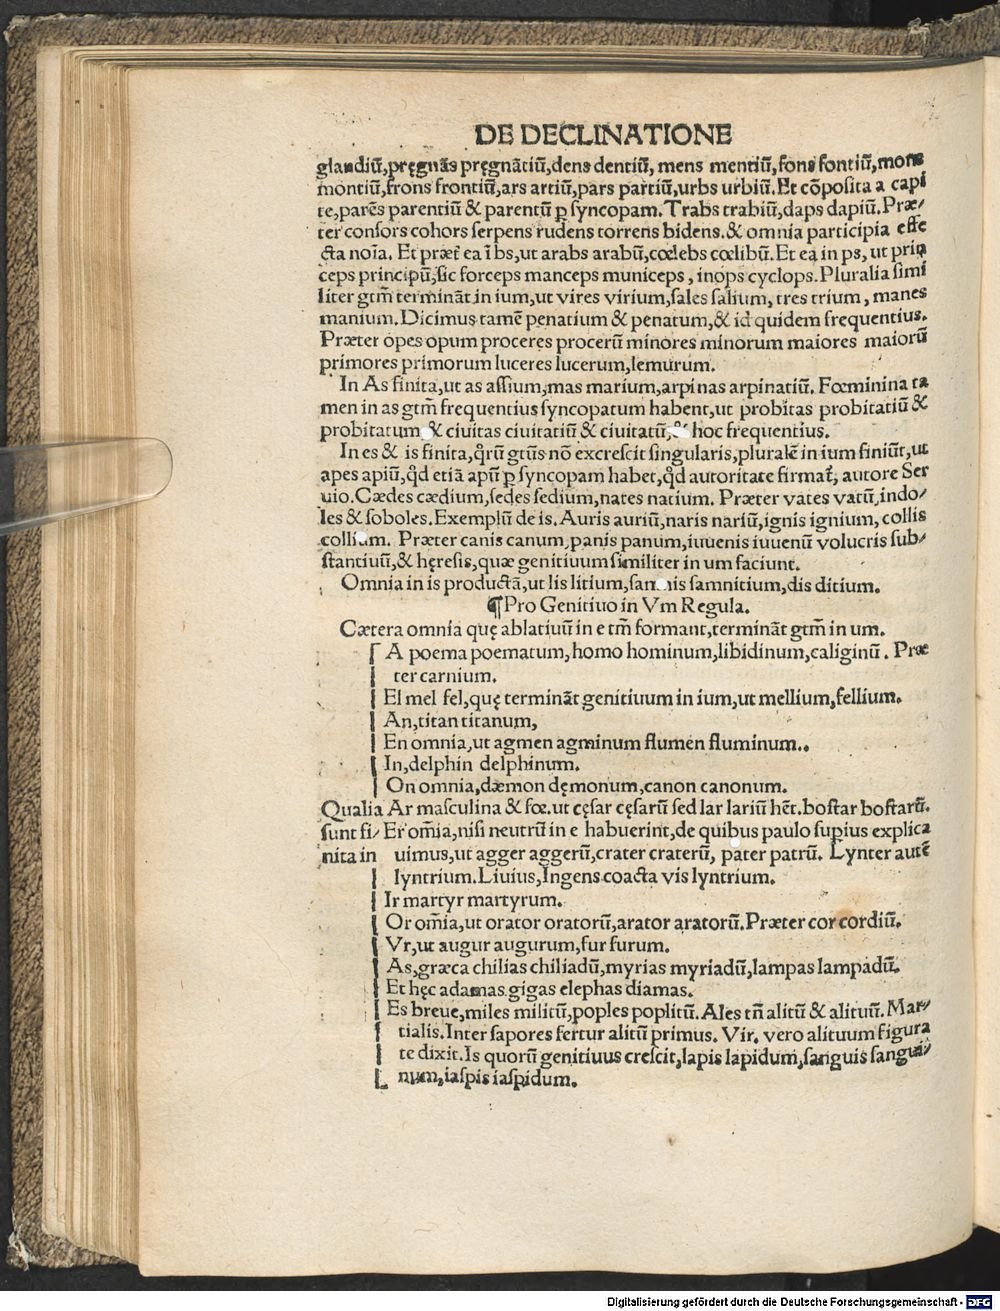 DE DECLINATIONE
glandiū,pręgnās pręgnātiū,dens dentiū, mens mentiū,fons fontiū,mons
montiū,frons frontiū,ars artiū,pars partiū,urbs urbiū.Et cōposita a capi
te,parēs parentiū & parentū ꝑ syncopam.Trabs trabiū,daps dapiū.Præ/
ter consors cohors serpens rudens torrens bidens.& omnia participia effe
cta noīa. Et præt̄ ea ī bs,ut arabs arabū,cœlebs cœlibū.Et ea in ps, ut prin
ceps principū,sic forceps manceps municeps, inops cyclops.Pluralia simi
liter gtm̄ termināt in ium,ut vires virium,sales salium, tres trium, manes
manium.Dicimus tamē penatium & penatum,& id quidem frequentius.
Præter opes opum proceres procerū minores minorum maiores maiorū
primores primorum luceres lucerum,lemurum.
In As finita,ut as assium,mas marium,arpinas arpinatiū. Fœminina ta
men in as gtm̄ frequentius syncopatum habent,ut probitas probitatiū &
probitatum & ciuitas ciuitatiū & ciuitatū,& hoc frequentius.
In es & is finita,q̄rū gtūs nō excrescit singularis,pluralē in ium finiūt,ut
apes apiū,q̄d etiā apū ꝑ syncopam habet,q̄d autoritate firmat̄, autore Ser
uio.Cædes cædium,sedes sedium,nates natium. Præter vates vatū,indo/
les & soboles.Exemplū de is.Auris auriū,naris nariū,ignis ignium, collis
collium. Præter canis canum,panis panum,iuuenis iuuenū volucris sub/
stantiuū,& hęresis,quæ genitiuum similiter in um faciunt.
Omnia in is productā,ut lis litium,samnis samnitium,dis ditium.
¶Pro Genitiuo in Vm Regula.
Cætera omnia quę ablatiuū in e tm̄ formant,termināt gtm̄ in um.
A poema poematum,homo hominum,libidinum,caliginū. Præ
ter carnium.
El mel fel,quę termināt genitiuum in ium,ut mellium,fellium.
An,titan titanum,
En omnia,ut agmen agminum flumen fluminum.
In,delphin delphinum.
On omnia,dæmon dęmonum,canon canonum.
Qualia Ar masculina & fœ.ut cęsar cęsarū sed lar lariū hēt.bostar bostarū.
sunt fi/ Er om̄ia,nisi neutrū in e habuerint,de quibus paulo supius explica
nita in uimus,ut agger aggerū,crater craterū, pater patrū. Lynter autē
lyntrium.Liuius,Ingens coacta vis lyntrium.
Ir martyr martyrum.
Or om̄ia,ut orator oratorū,arator aratorū.Præter cor cordiū.
Vr,ut augur augurum,fur furum.
As,græca chilias chiliadū,myrias myriadū,lampas lampadū.
Et hęc adamas gigas elephas diamas.
Es breue,miles militū,poples poplitū.Ales tn̄ alitū & alituū. Mar/
tialis.Inter sapores fertur alitū primus. Vir. vero alituum figura
te dixit.Is quorū genitiuus crescit,lapis lapidum,sanguis sangui/
num,iaspis iaspidum.
Digitalisierung gefördert durch die Deutsche Forschungsgemeinschaft - DFG